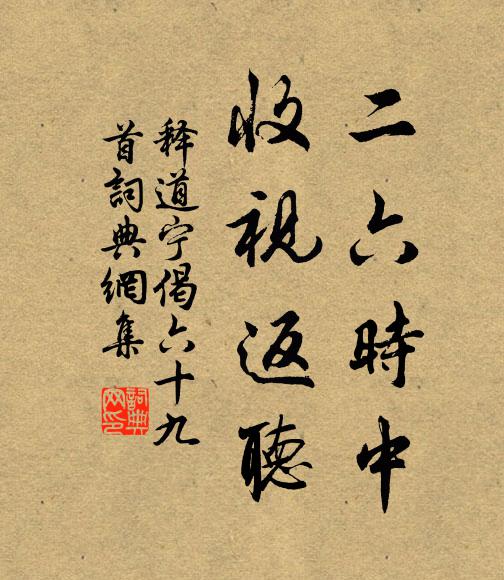 二六時中
收視返聽
释道宁偈六十九
首詞典網集
詞典
網印